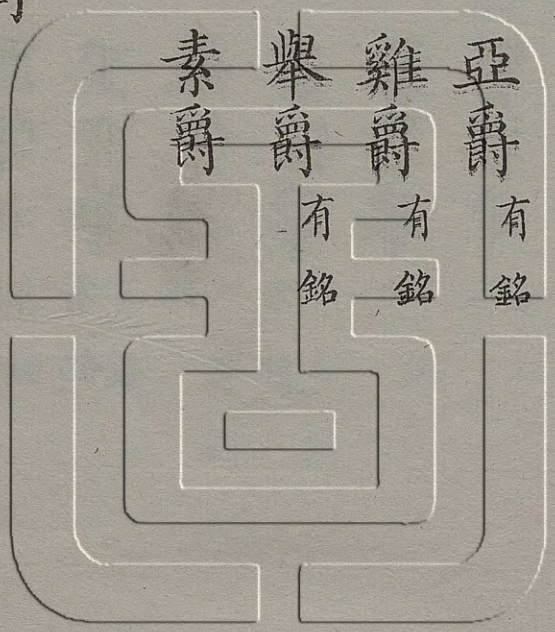 亞爵有銘
雞爵有銘
舉爵有銘
素爵